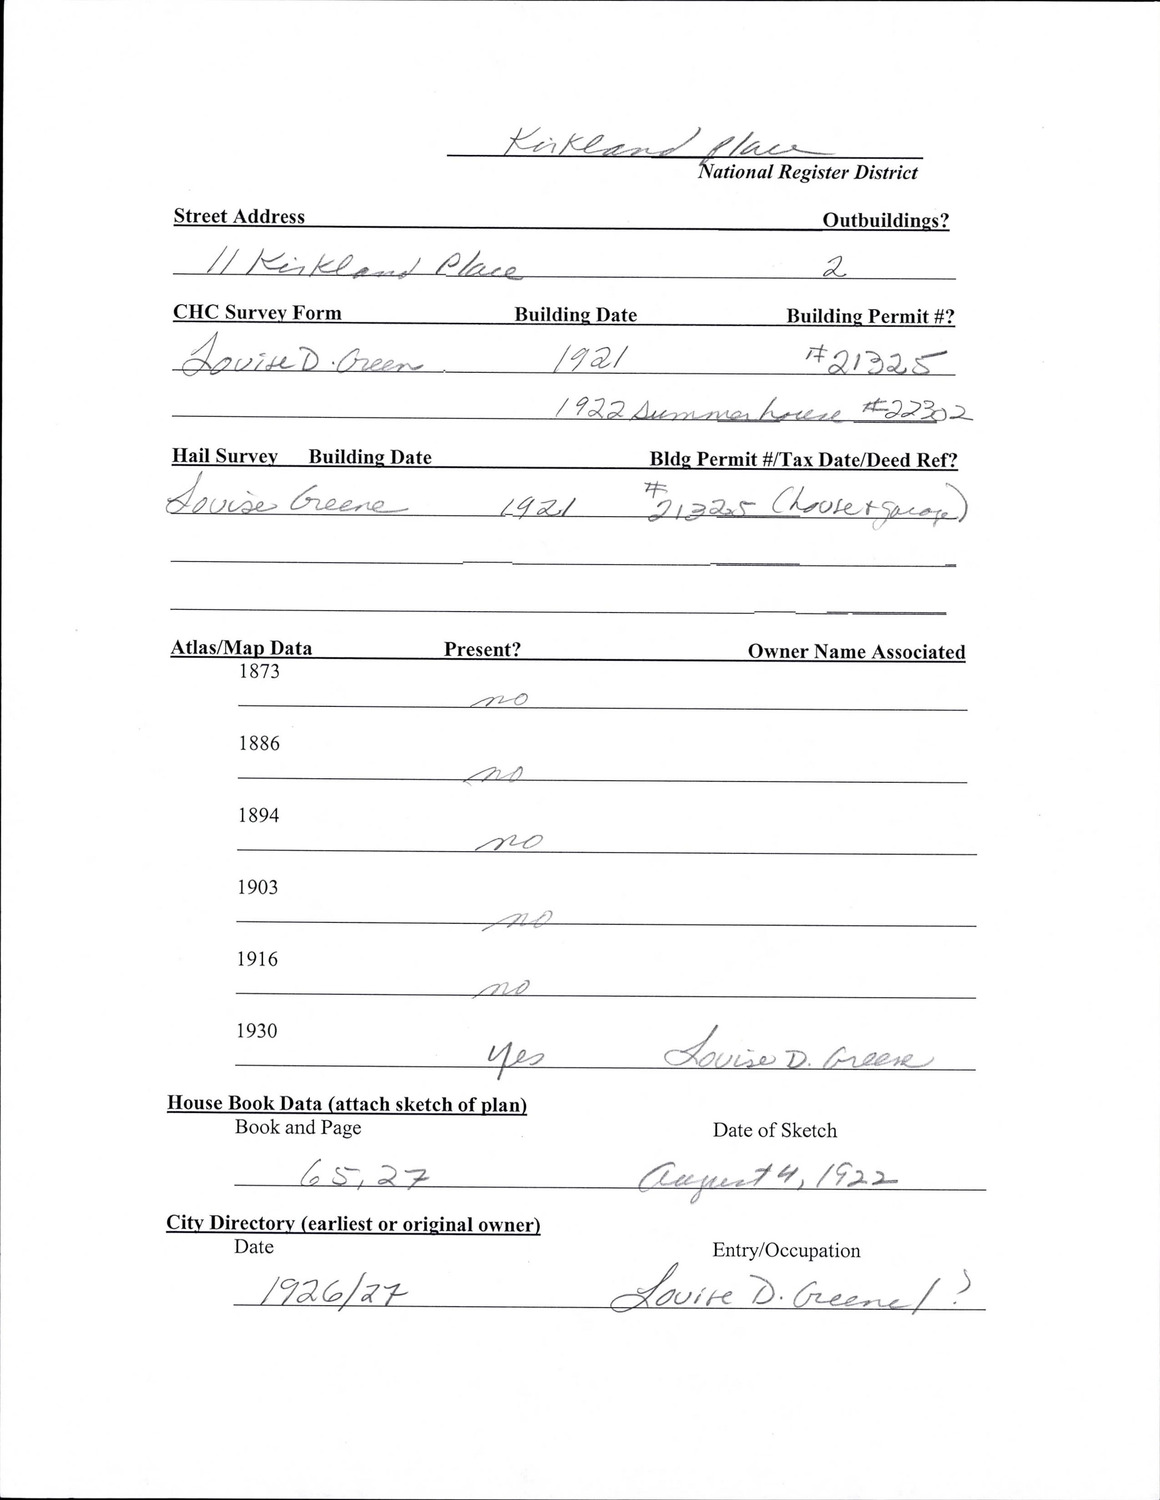 Kirkland Place
National Register District
Street Address Outbuildings?
11 Kirkland Place 2
CHC Survey Form Building Date Building Permit #?
Louise D. Green 1921 #21325
1922 Summerhouse #22302
Hail Survey Building Date Bldg Permit #/Tax Date/Deed Ref?
Louise Greene 1921 #21325 (house + garage)
Atlas/Map Data Present? Owner Name Associated
1873
no
1886
no
1894
no
1903
no
1916
no
1930
yes Louise D. Greene
House Book Data (attach sketch of plan)
Book and Page Date of Sketch
65, 27 August 4, 1922
City Directory (earliest or original owner)
Date Entry/Occupation
1926/27 Louise D. Greene / ?